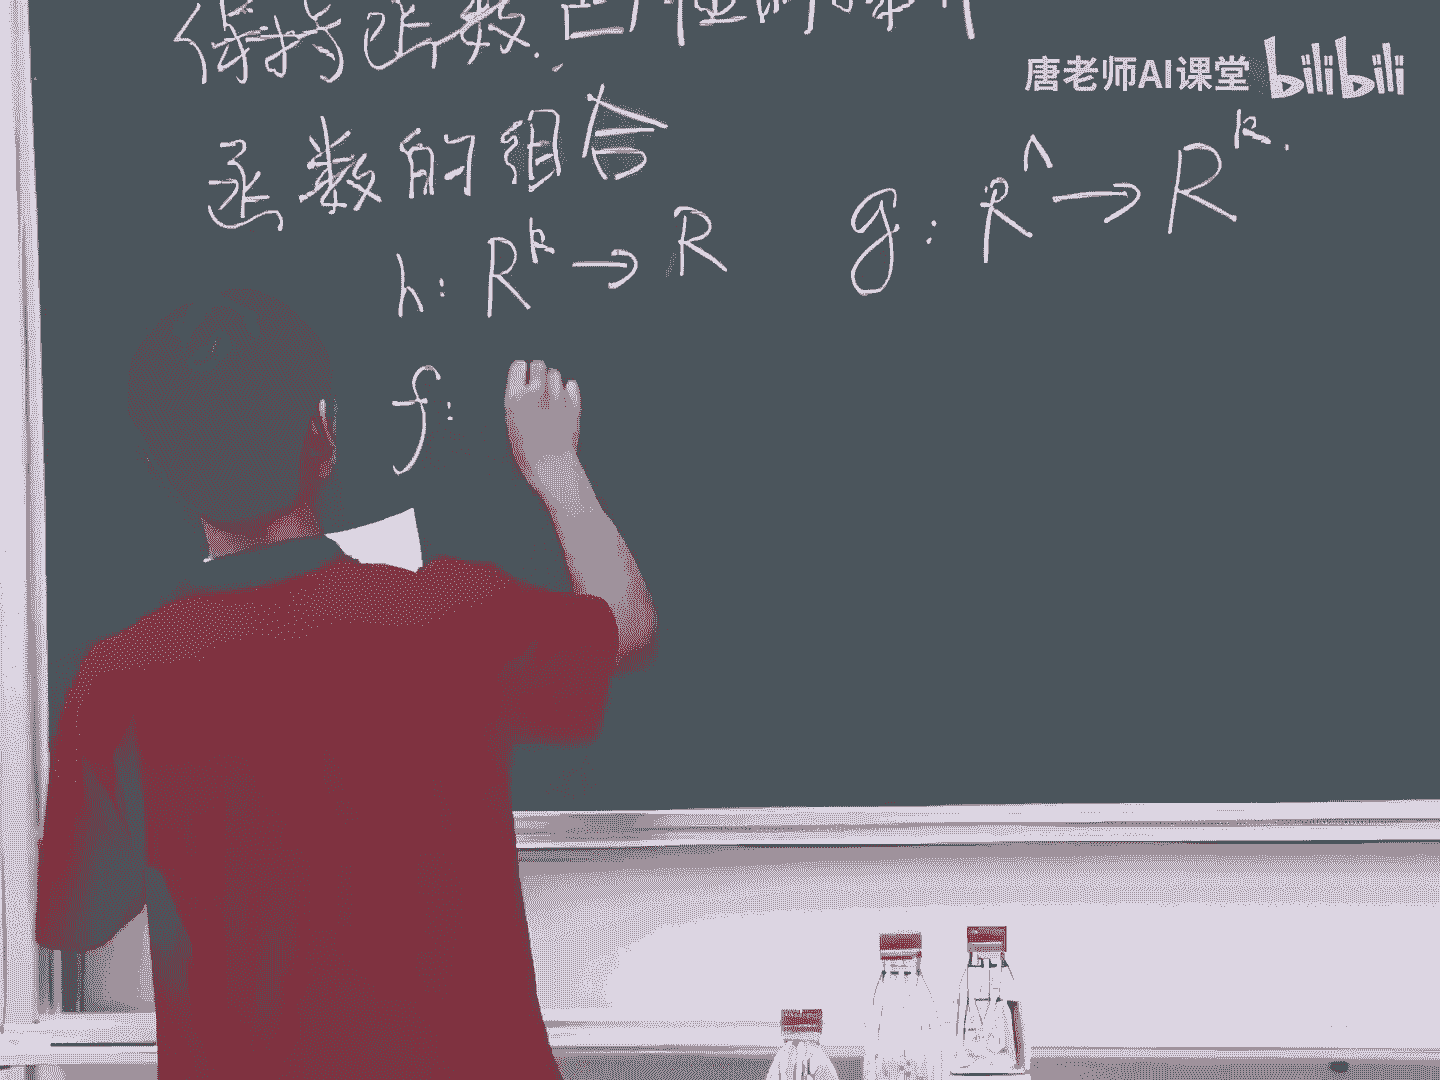 保持函数凸性的操作
唐老师AI课堂 bilibili
函数的组合
h: R^k → R
g: R^n → R^k.
f: